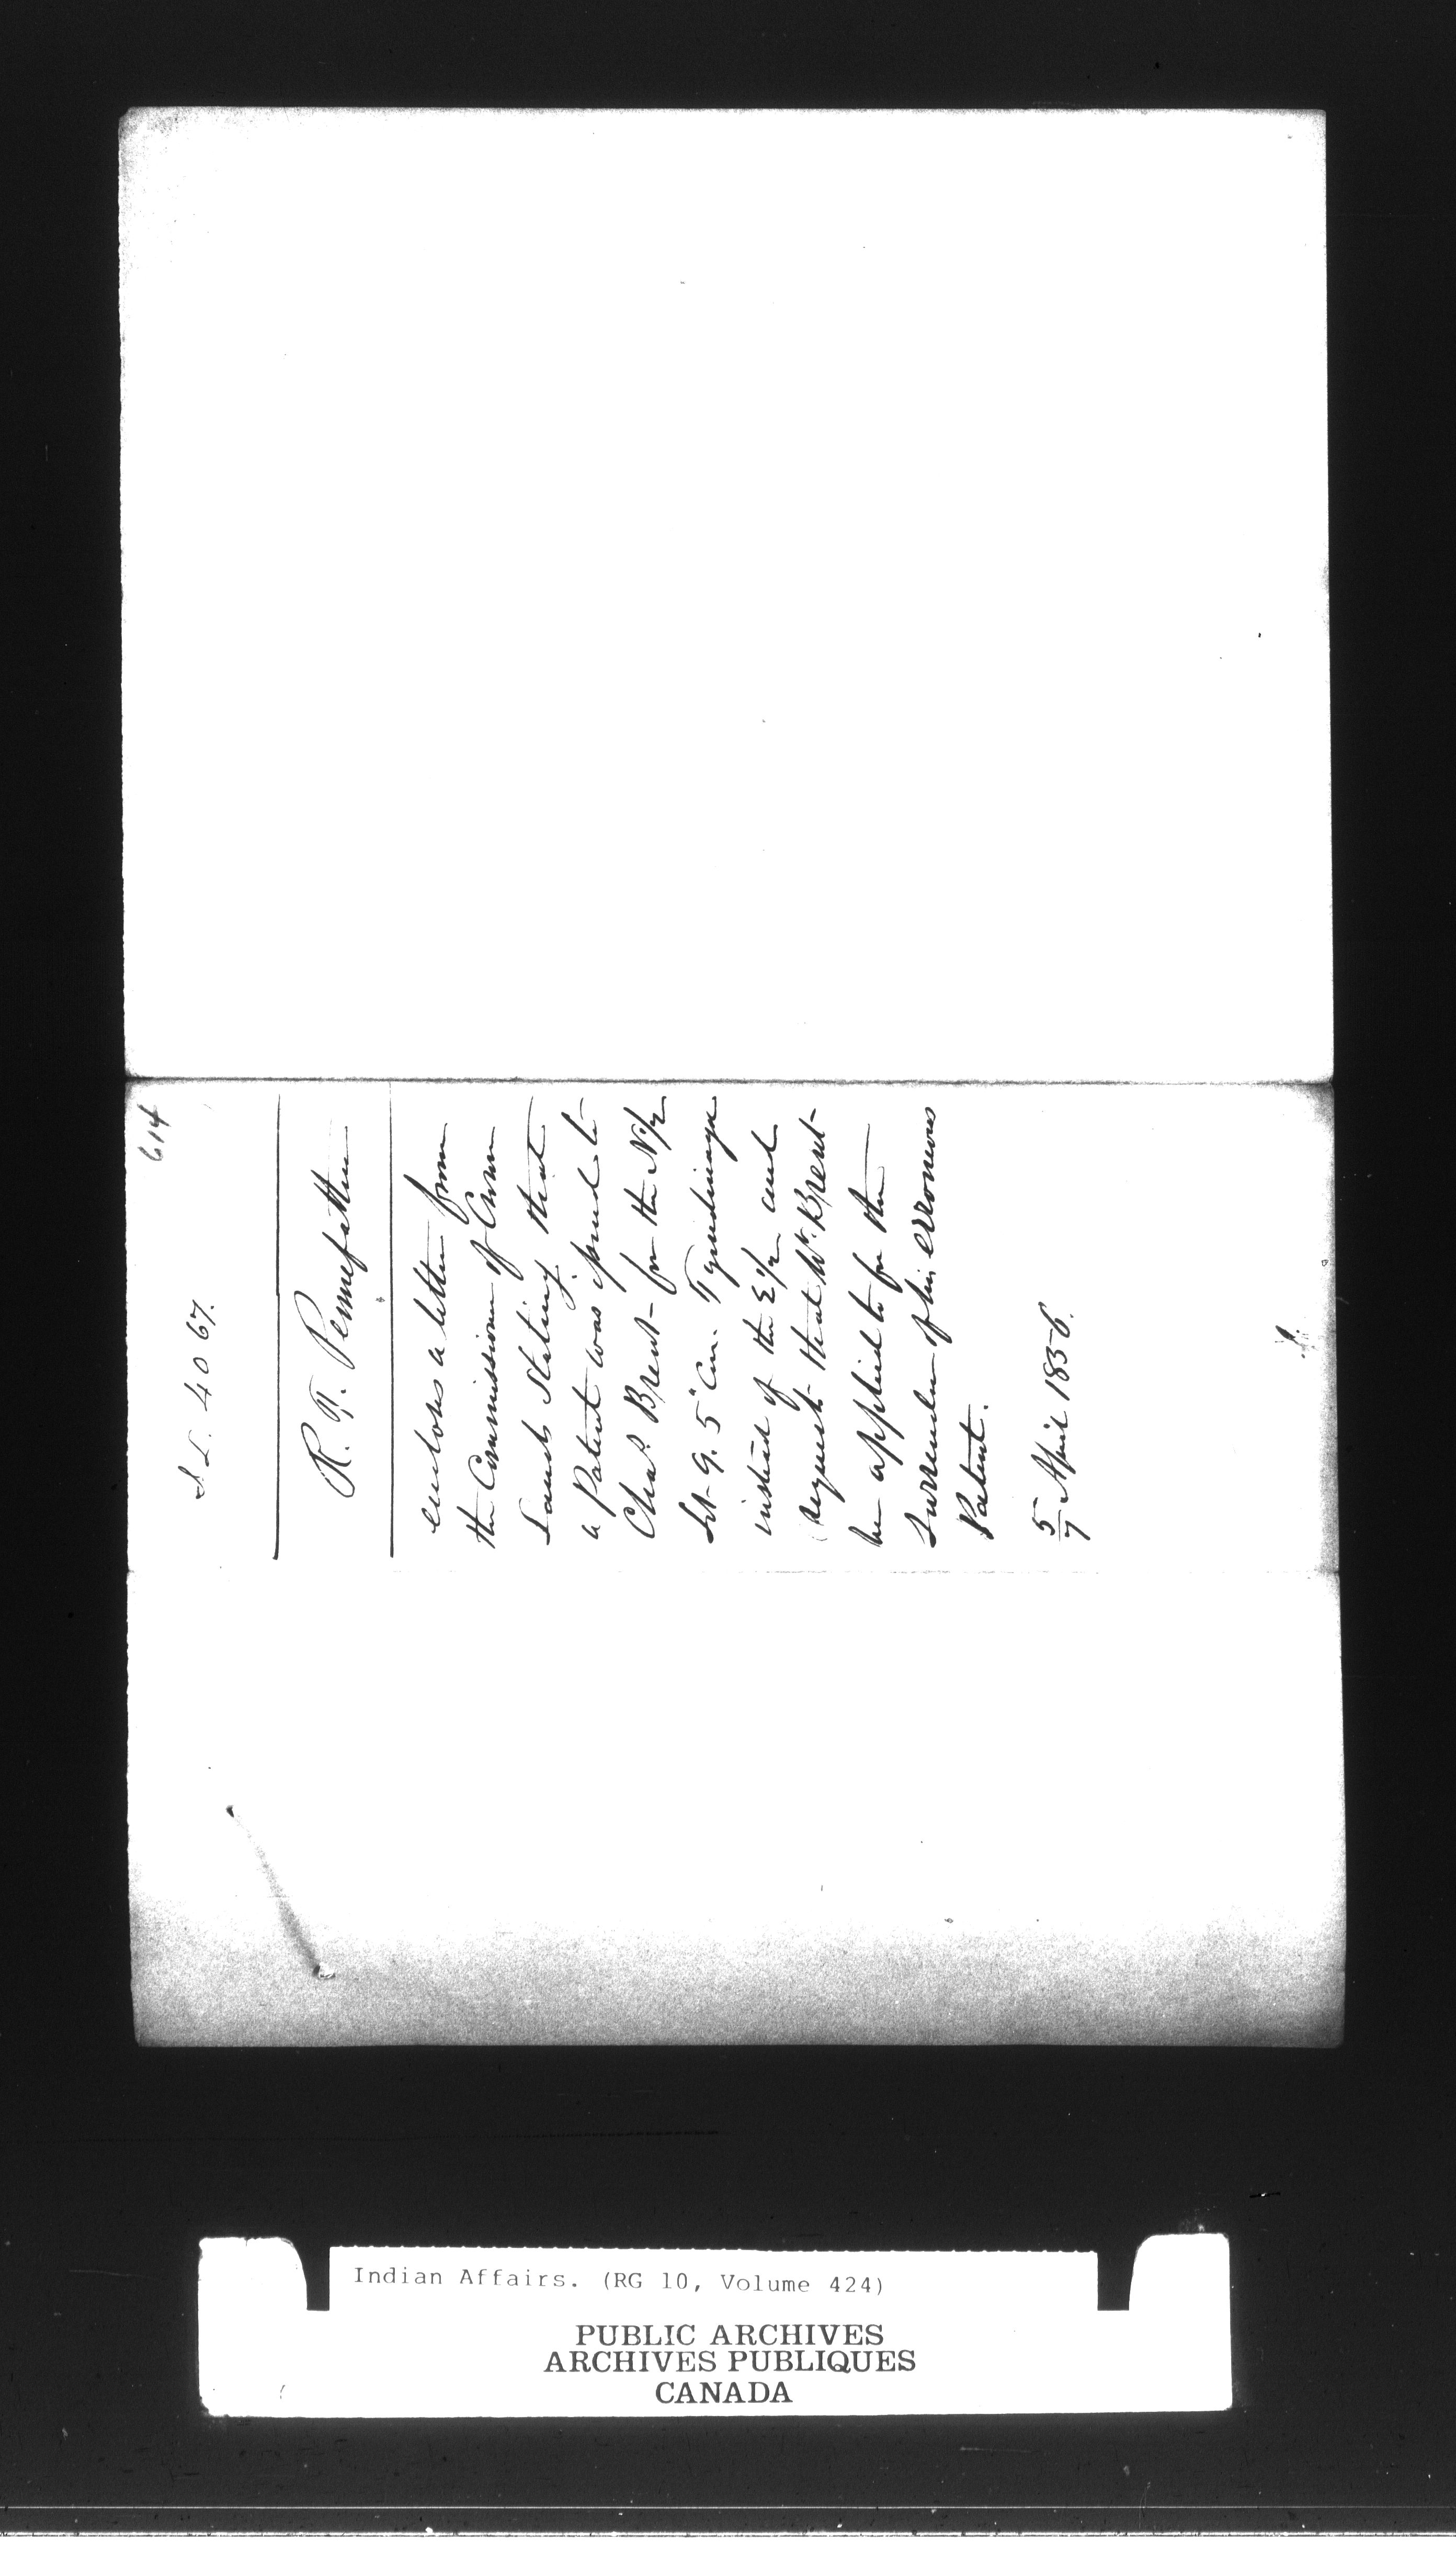 614
I. L. 4067.
R. T. Pennefather
encloses a letter from
the Commissioner of Crown
Lands Stating that
a Patent was issued to
Chas. Brent for the N ½
Lot 9. 5" Con. Tyendinaga
instead of the E ½ and
request that Mr. Brent
be applied to for the
surrender of his erroneous
Patent.
5/7 April 1856.
Indian Affairs. (RG 10, Volume 424)
PUBLIC ARCHIVES
ARCHIVES PUBLIQUES
CANADA